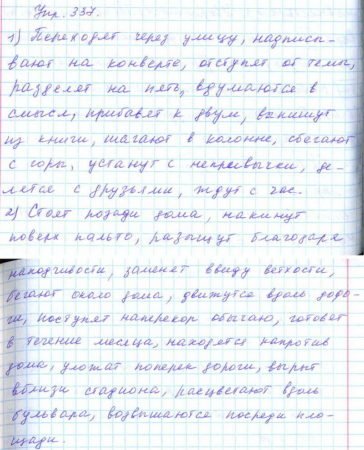 Упр. 337.
1) Переходят через улицу, надписы-
вают на конверте, отступят от темы,
разделят на пять, вдумаются в
смысл, прибавят к двум, выпишут
из книги, шагают в колонне, сбегают
с горы, устанут с непривычки, де-
лятся с друзьями, ждут с час.
2) Стоят позади дома, накинут
поверх пальто, разыщут благодаря
находчивости, заменят ввиду ветхости,
бегают около дома, движутся вдоль доро-
ги, поступят наперекор обычаю, готовят
в течение месяца, находятся напротив
дома, уложат поперек дороги, вырыт
вблизи стадиона, расцветают вдоль
бульвара, возвышаются посреди пло-
щади.